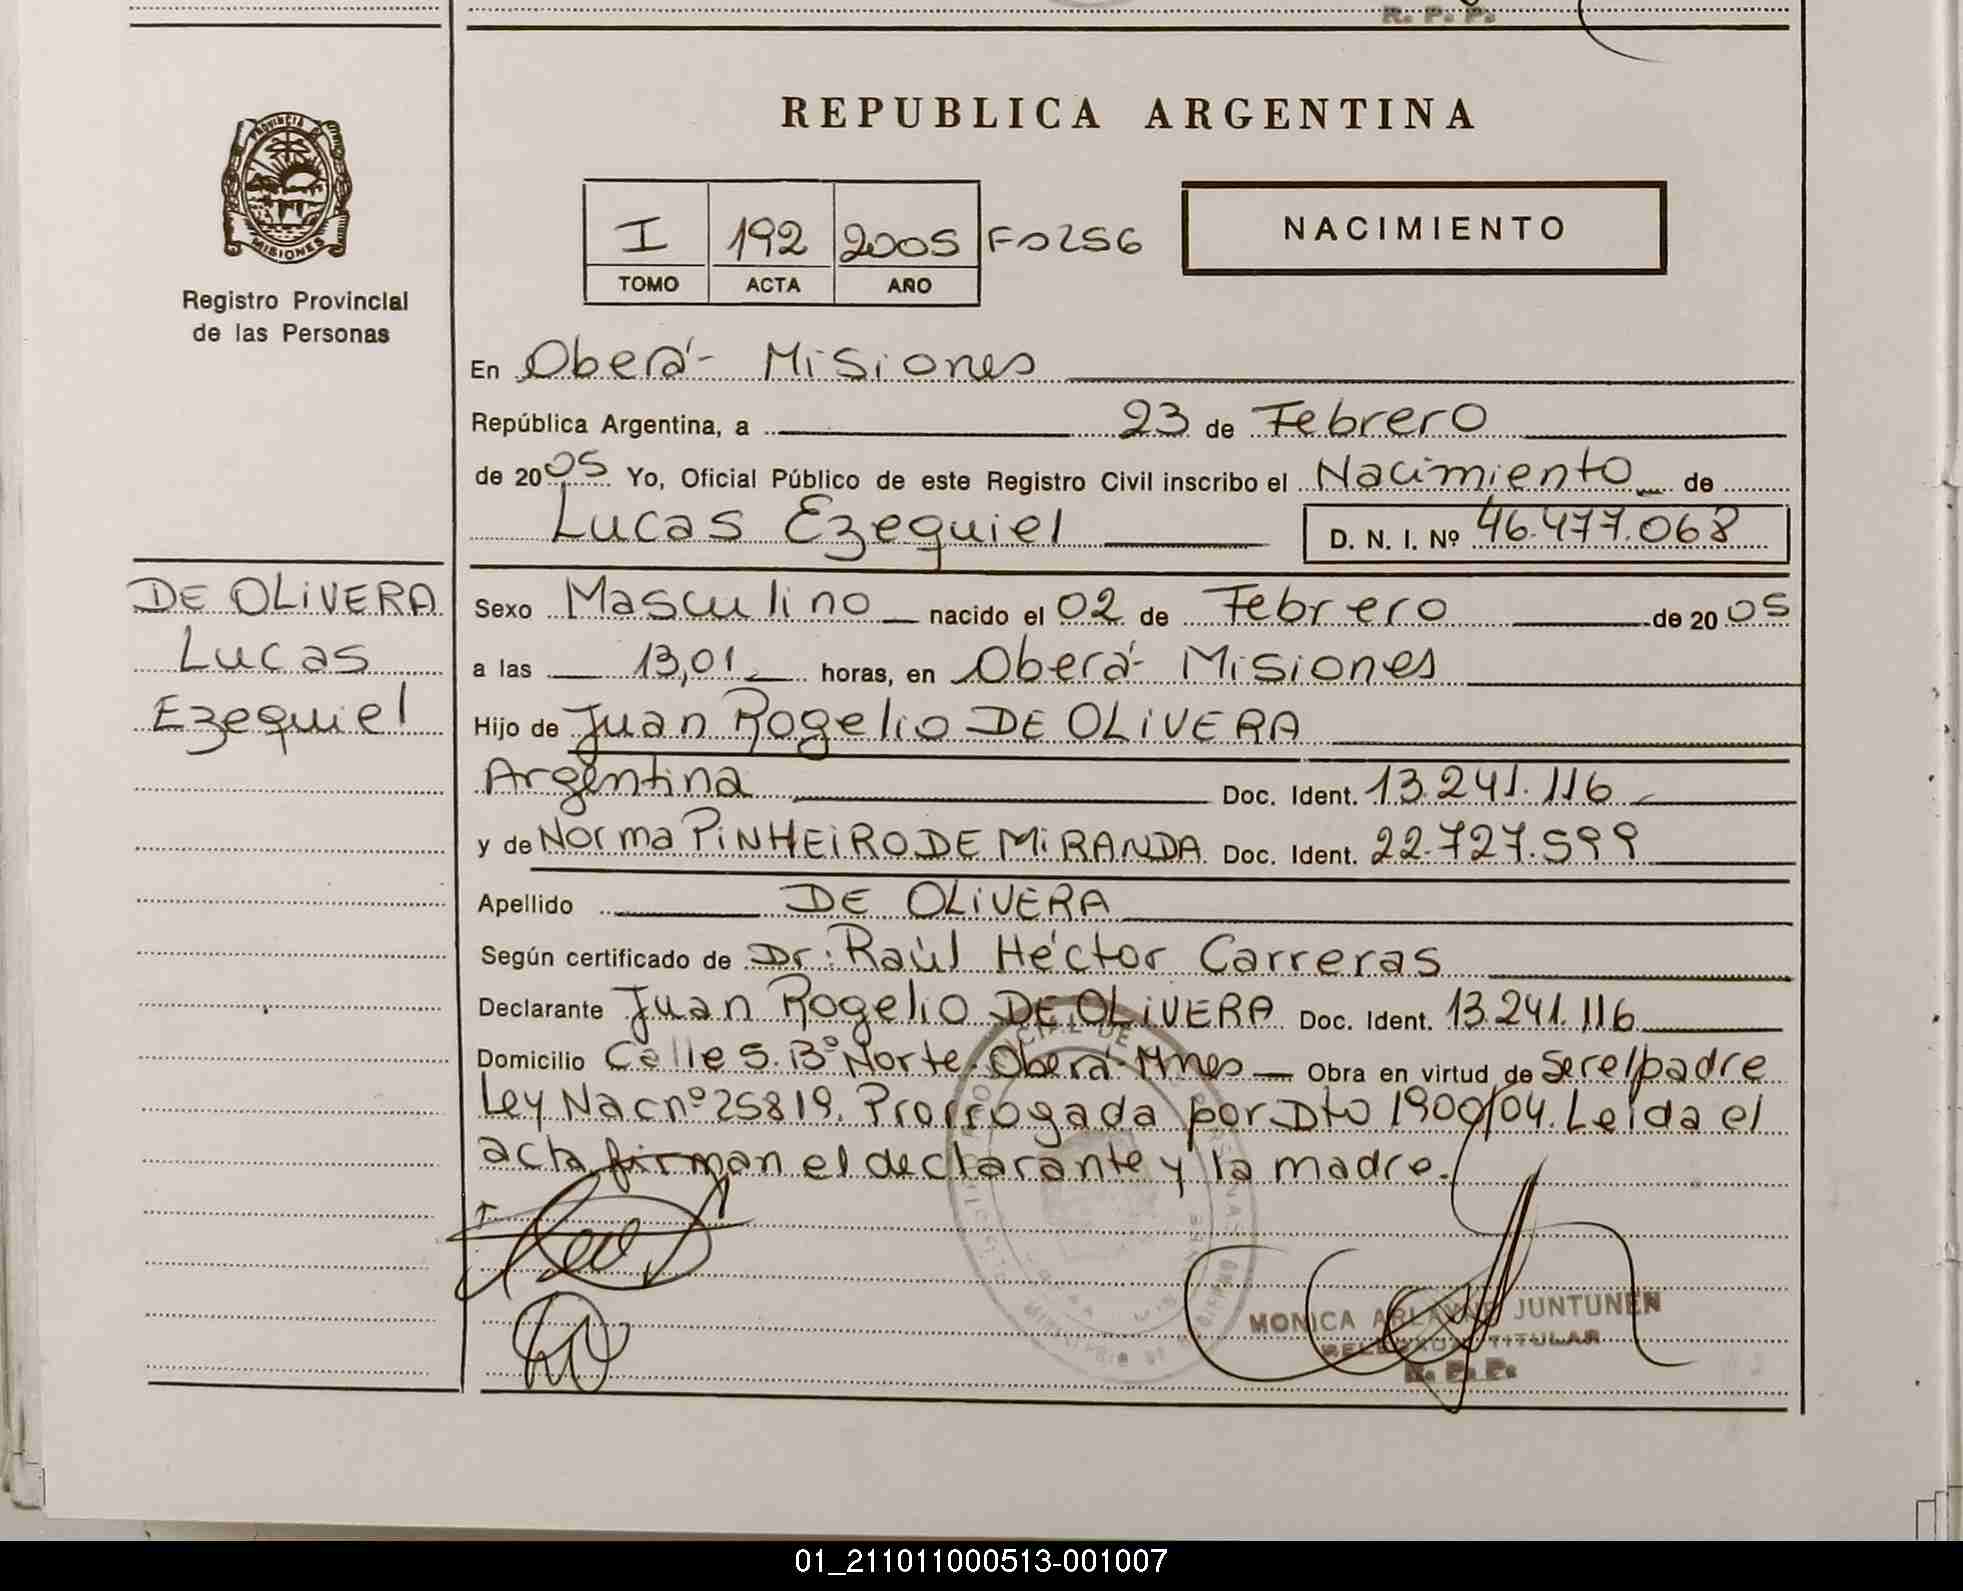 R. P. P.
PROVINCIA DE
MISIONES
Registro Provincial
de las Personas
REPUBLICA ARGENTINA
I 192 2005 Fo 256
TOMO ACTA AÑO
NACIMIENTO
En Oberá - Misiones
República Argentina, a 23 de Febrero
de 2005 Yo, Oficial Público de este Registro Civil inscribo el Nacimiento de
Lucas Ezequiel D. N. I. Nº 46.477.068
DE OLIVERA
Lucas
Ezequiel
Sexo Masculino nacido el 02 de Febrero de 2005
a las 13,01 horas, en Oberá - Misiones
Hijo de Juan Rogelio DE OLIVERA
Argentina Doc. Ident. 13.241.116
y de Norma PINHEIRO DE MIRANDA Doc. Ident. 22.727.599
Apellido DE OLIVERA
Según certificado de Dr. Raúl Héctor Carreras
Declarante Juan Rogelio DE OLIVERA Doc. Ident. 13.241.116
Domicilio Calle 5. Bº Norte. Oberá - Mnes Obra en virtud de Ser el padre
Ley Nac nº 25819. Prorrogada por Dto 1900/04. Leida el
acta firman el declarante y la madre.
MONICA ARLAYNE JUNTUNEN
DELEGADA TITULAR
R. P. P.
01_211011000513-001007